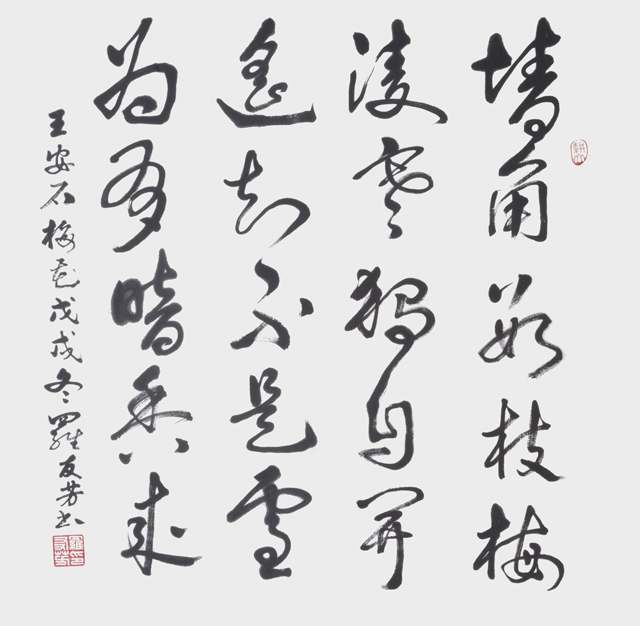 墙角数枝梅
凌寒独自开
遥知不是雪
为有暗香来
王安石梅花戊戌冬羅友芳书